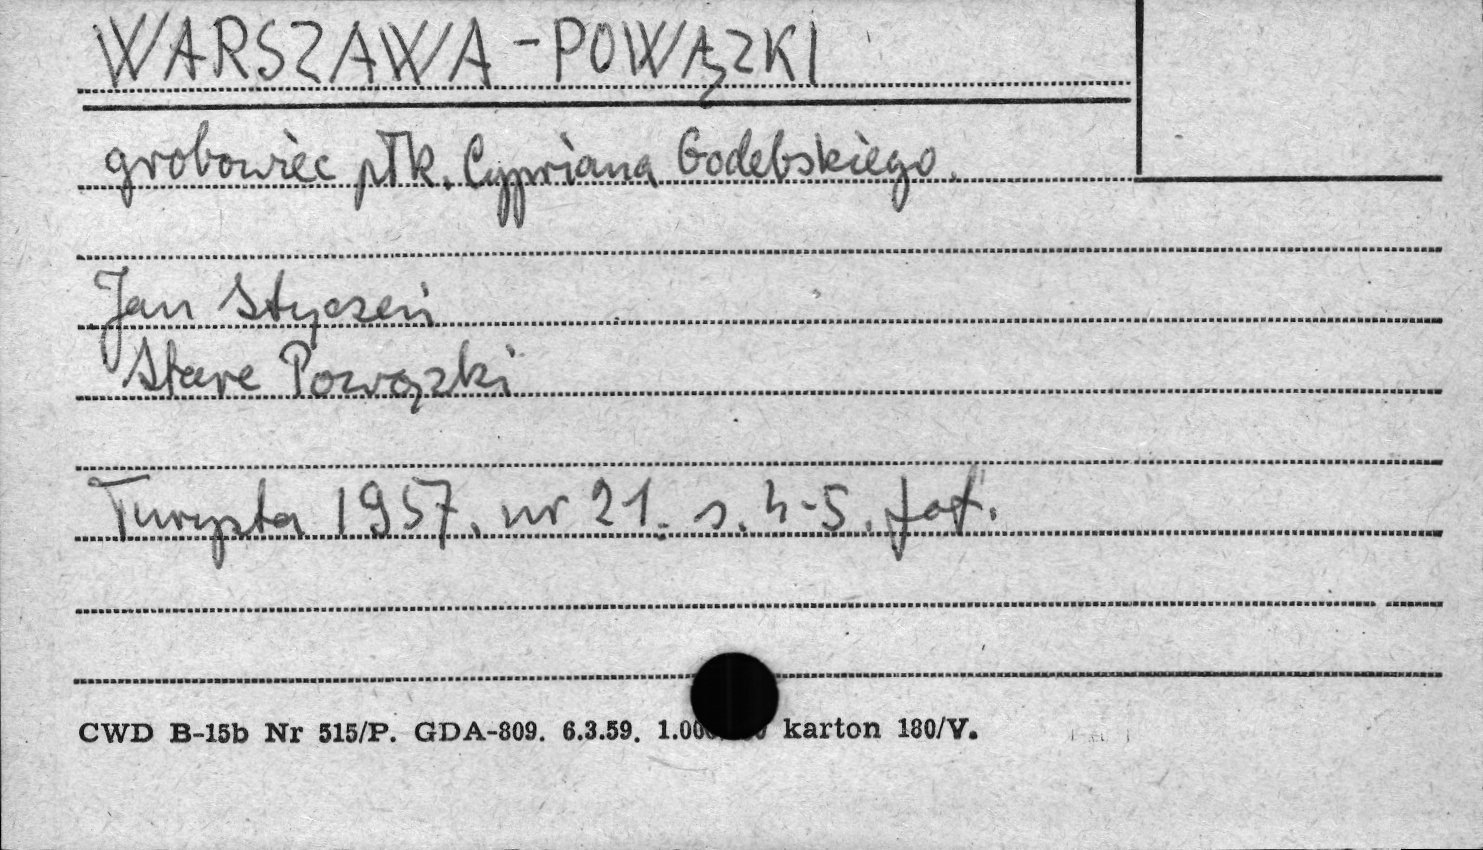 WARSZAWA - POWĄZKI
grobowiec płk. Cypriana Godebskiego.
Jan Styczeń
Stare Powązki
Turysta 1957. nr 21. s. 4-5. fot.
CWD B-15b Nr 515/P. GDA-809. 6.3.59. karton 180/V.